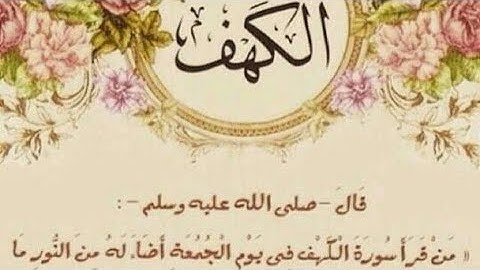 الكهف
قَالَ -صلى الله عليه وسلم -:
« مَنْ قَرَأَ سُورَةَ الْكَهْفِ فى يَوْمِ الْجُمُعَةِ أَضَاءَ لَهُ مِنَ النُّورِ مَا